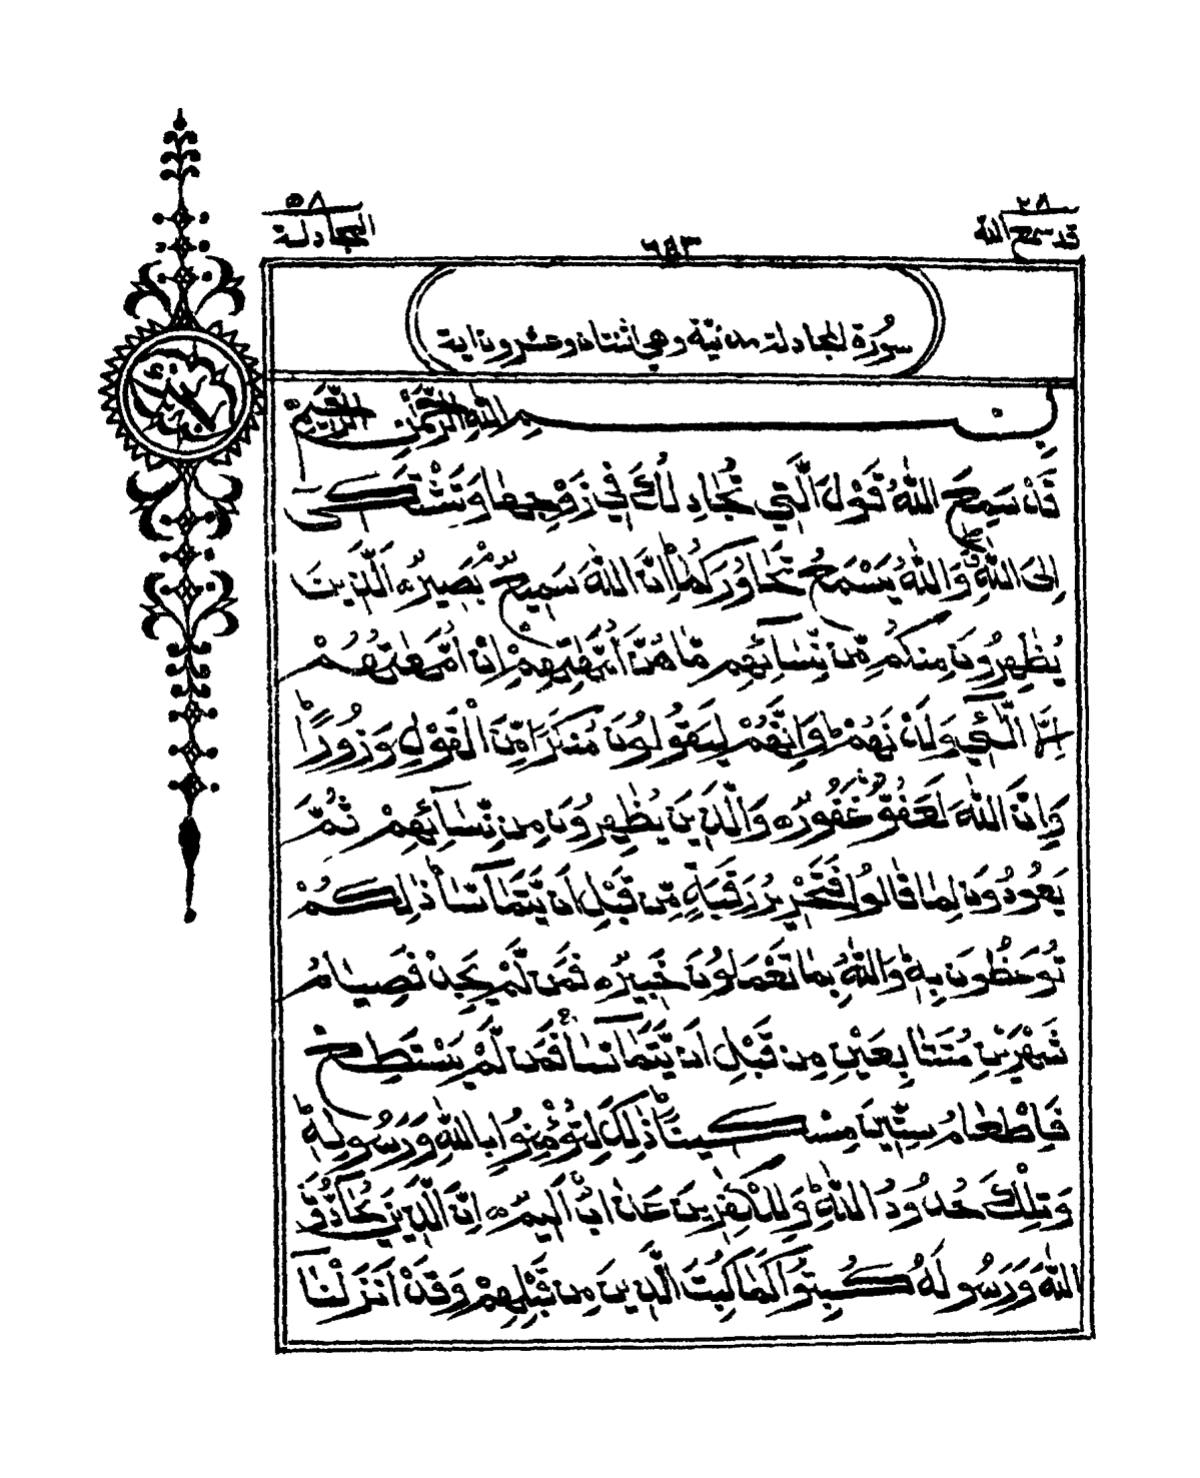 ٢٨
قد سمع الله
٥٨
المجادلة
٦٨٣
سورة المجادلة مدنية وهي اثنتان وعشرون اية
بسم الله الرحمن الرحيم
قَدْ سَمِعَ اللّٰهُ قَوْلَ الَّتِي تُجَادِلُكَ فِي زَوْجِهَا وَتَشْتَكِي
اِلَى اللّٰهِ وَاللّٰهُ يَسْمَعُ تَحَاوُرَكُمَا اِنَّ اللّٰهَ سَمِيعٌ بَصِيرٌ اَلَّذِينَ
يُظٰهِرُونَ مِنكُم مِّن نِّسَآئِهِم مَّا هُنَّ اُمَّهٰتِهِمْ اِنْ اُمَّهٰتُهُمْ
اِلَّا الّٰٓـِٔي وَلَدْنَهُمْ وَاِنَّهُمْ لَيَقُولُونَ مُنكَرًا مِّنَ الْقَوْلِ وَزُورًا
وَاِنَّ اللّٰهَ لَعَفُوٌّ غَفُورٌ وَالَّذِينَ يُظٰهِرُونَ مِن نِّسَآئِهِمْ ثُمَّ
يَعُودُونَ لِمَا قَالُوا فَتَحْرِيرُ رَقَبَةٍ مِّن قَبْلِ اَن يَّتَمَآسَّا ذٰلِكُمْ
تُوعَظُونَ بِهِ وَاللّٰهُ بِمَا تَعْمَلُونَ خَبِيرٌ فَمَن لَّمْ يَجِدْ فَصِيَامُ
شَهْرَيْنِ مُتَتَابِعَيْنِ مِن قَبْلِ اَن يَّتَمَآسَّا فَمَن لَّمْ يَسْتَطِعْ
فَاِطْعَامُ سِتِّينَ مِسْكِينًا ذٰلِكَ لِتُؤْمِنُوا بِاللّٰهِ وَرَسُولِهِ
وَتِلْكَ حُدُودُ اللّٰهِ وَلِلْكٰفِرِينَ عَذَابٌ اَلِيمٌ اِنَّ الَّذِينَ يُحَآدُّونَ
اللّٰهَ وَرَسُولَهُ كُبِتُوا كَمَا كُبِتَ الَّذِينَ مِن قَبْلِهِمْ وَقَدْ اَنزَلْنَآ